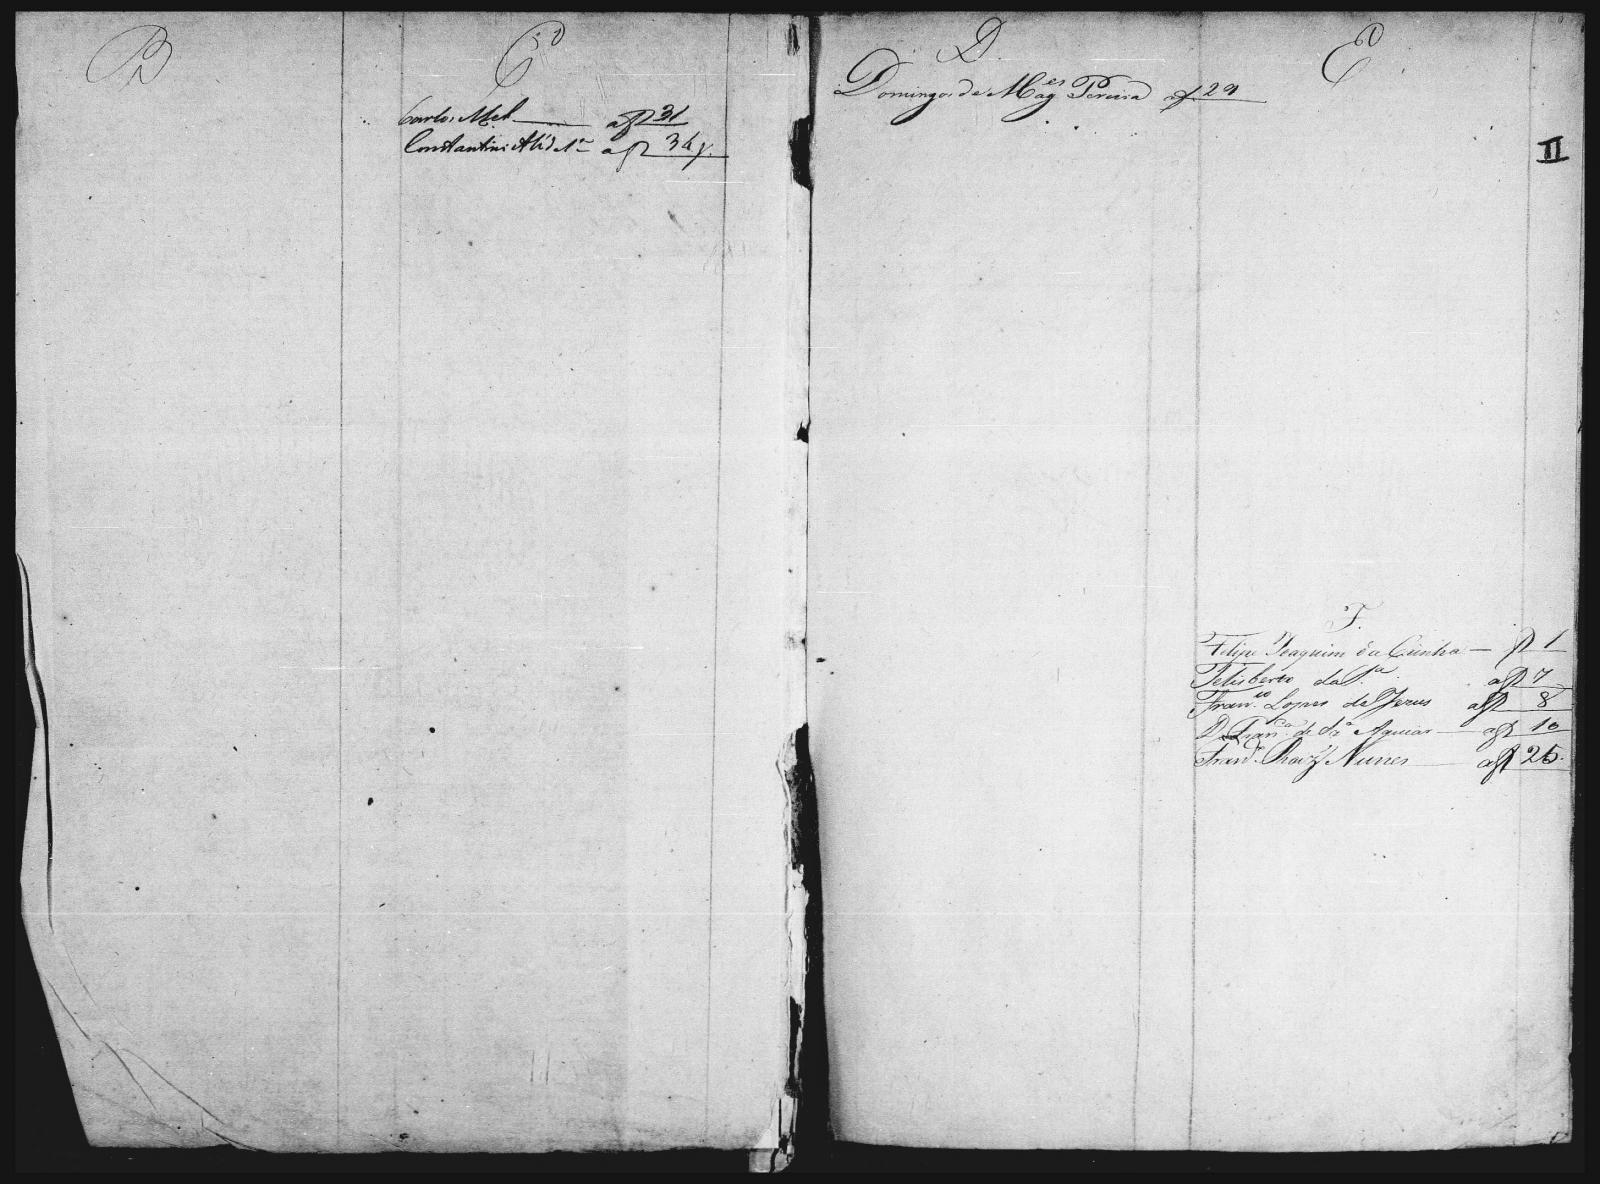 B
C
Carlos Mel af 31
Constantino af 34
D
Domingos de Mag.es Pereira af 29
E
II
F.
Felipe Joaquim da Cunha — f 1
Felisberto da S.a af 7
Fran.co Lopes de Jezus af 8
D. Fran.ca de Sz.a Aguiar af 10
Fran.co Roiz Nunes af 25